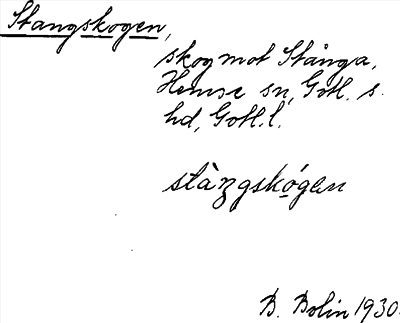 Stangskogen,
skog mot Stånga,
Hemse sn, Gotl. s.
hd, Gotl. l.
stàŋgskógen
B. Bolin 1930.